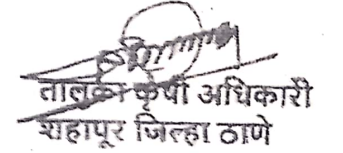 तालुका कृषी अधिकारी
शहापूर जिल्हा ठाणे